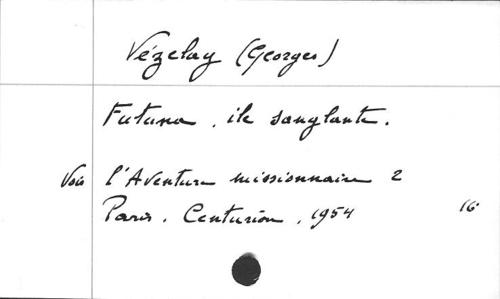 Vézelay (Georges)
Futuna, ile sanglante.
Voir l'Aventure missionnaire 2
Paris. Centurion, 1954 16